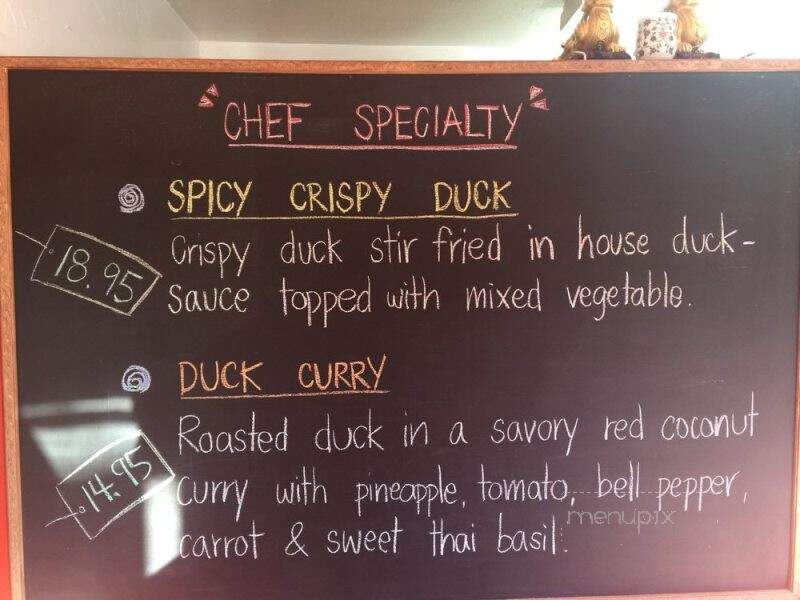 "CHEF SPECIALTY"
SPICY CRISPY DUCK
18.95
Crispy duck stir fried in house duck-
sauce topped with mixed vegetable.
DUCK CURRY
14.95
Roasted duck in a savory red coconut
curry with pineapple, tomato, bell pepper,
carrot & sweet thai basil.
menupix